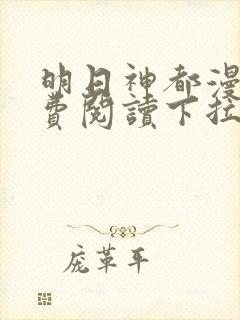 明日神都漫
費閱讀下拉
庞革平